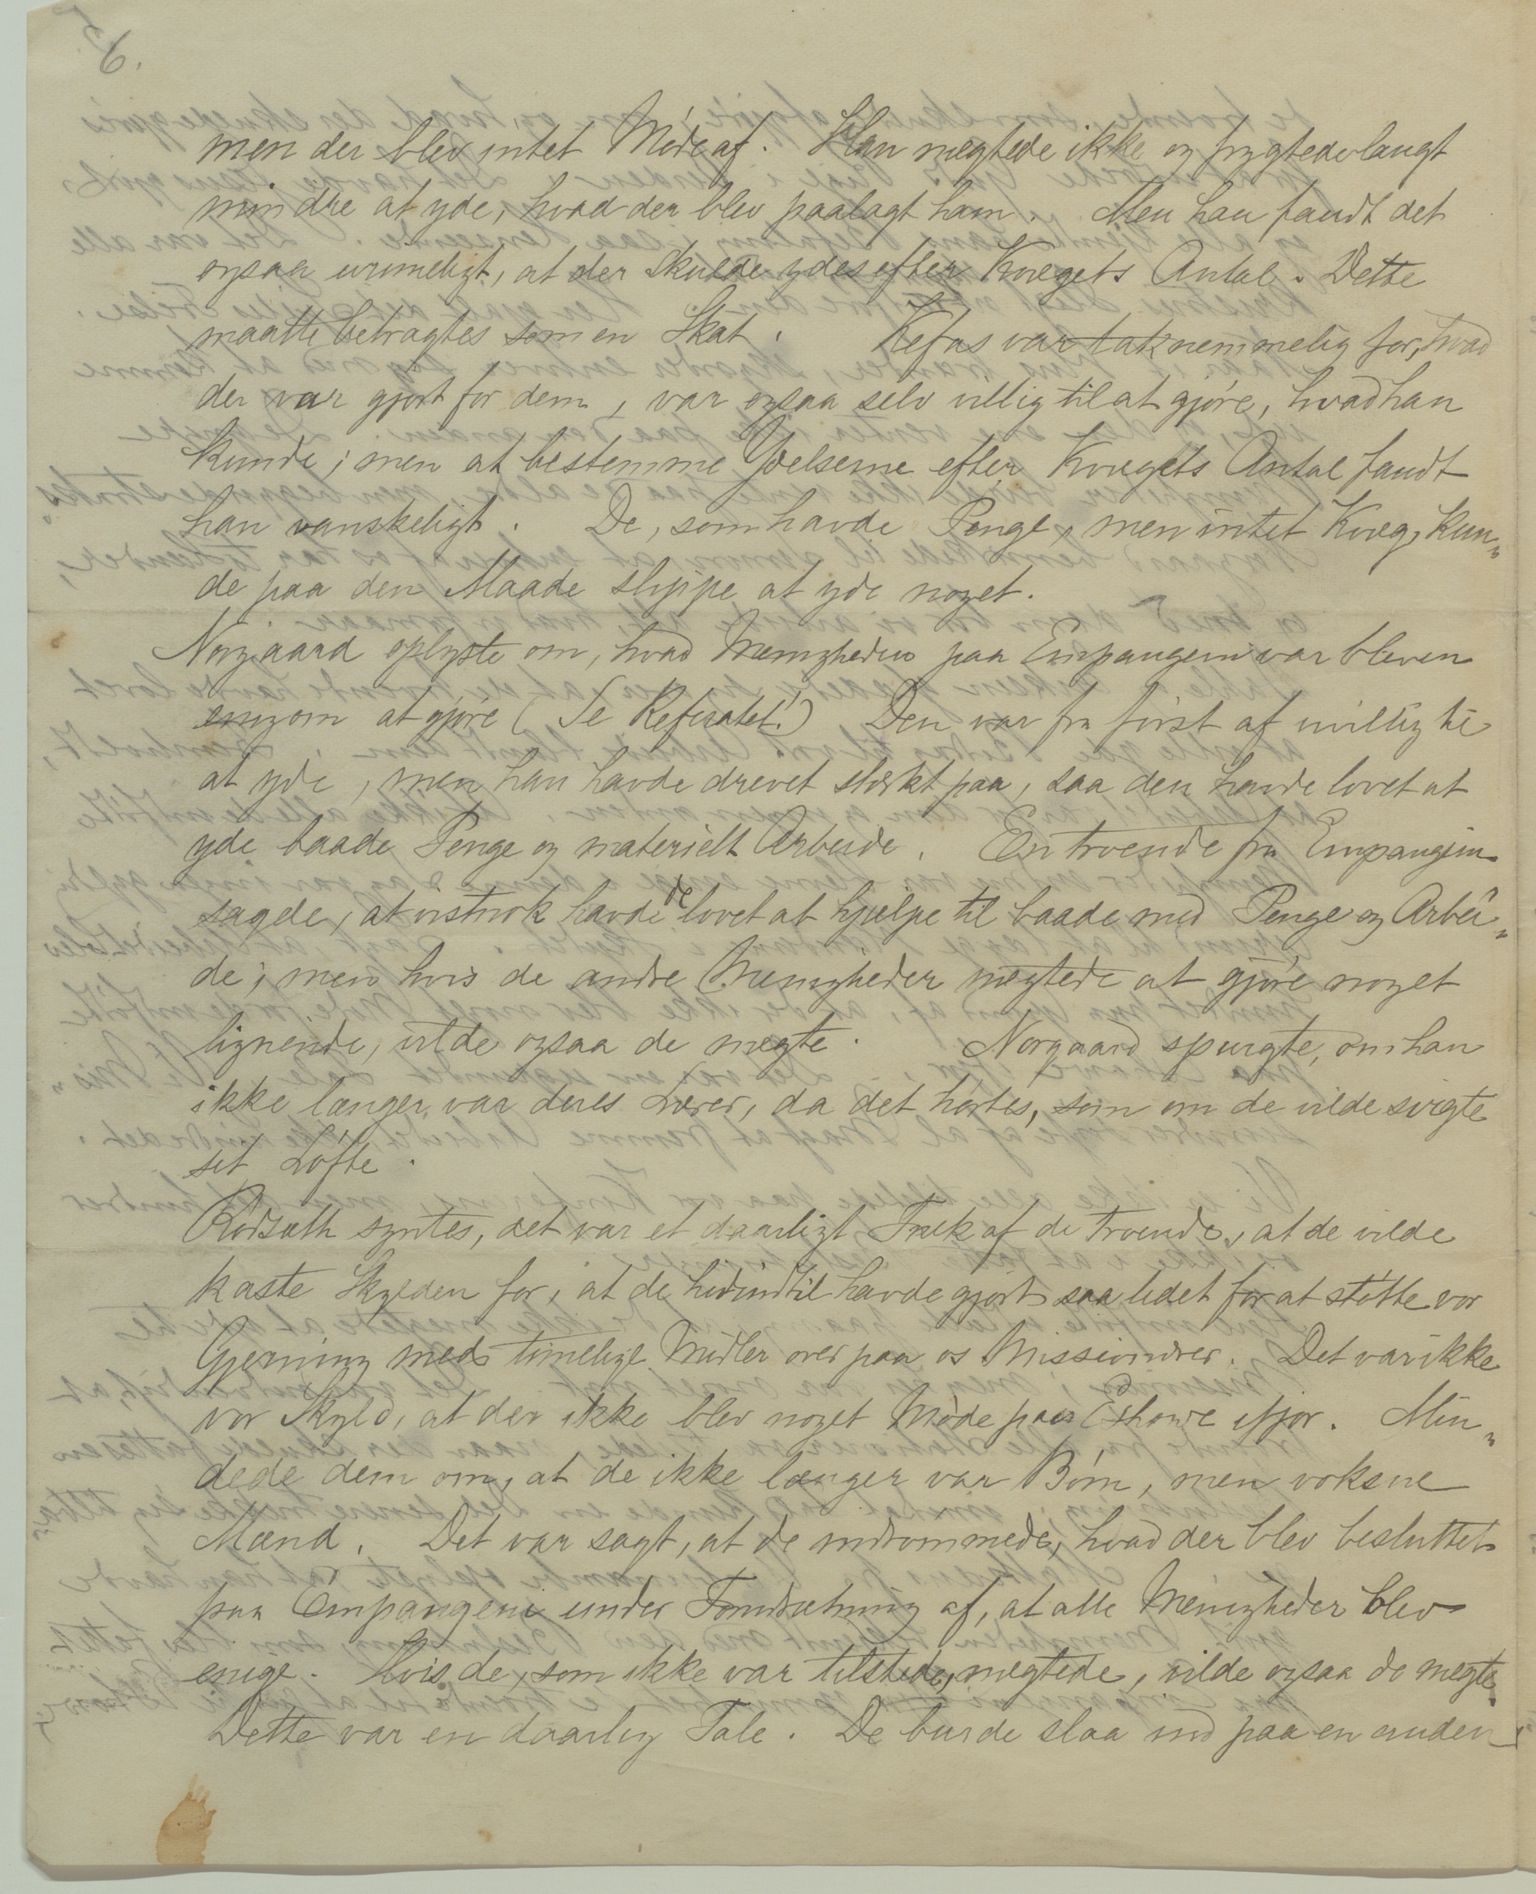 6.
men der blev intet Møde af. Han nægtede ikke og frygtede langt
mindre at yde, hvad der blev paalagt ham. Men han fandt det
ogsaa urimeligt, at der skulde ydes efter Kvægets Antal. Dette
maatte betragtes som en Skat. Kefas var taknemmelig for, hvad
der var gjort for dem, var ogsaa selv villig til at gjøre, hvad han
kunde; men at bestemme Ydelserne efter Kvægets Antal fandt
han vanskeligt. De, som havde Penge, men intet Kvæg, kun„
de paa den Maade slippe at yde noget.
Norgaard oplyste om, hvad Menigheden paa Empangeni var bleven
enig om at gjøre (Se Referatet!) Den var fra først af uvillig til
at yde, men han havde drevet stærkt paa, saa den havde lovet at
yde baade Penge og materielt Arbeide. En troende fra Empangeni
sagde, at vistnok havde de lovet at hjælpe til baade med Penge og Arbei„
de; men hvis de andre Menigheder nægtede at gjøre noget
lignende, vilde ogsaa de nægte. Norgaard spurgte, om han
ikke længer var deres Lærer, da det hørtes, som om de vilde svigte
sit Løfte.
Rødsæth syntes, det var et daarligt Træk af de troende, at de vilde
kaste Skylden for, at de hidindtil havde gjort saa lidet for at støtte vor
Gjerning med timelige Midler over paa os Missionærer. Det var ikke
vor Skyld, at der ikke blev noget Møde paa Eshowe ifjor. Min„
dede dem om, at de ikke længer var Børn, men voksne
Mænd. Det var sagt, at de indrømmede, hvad der blev besluttet
paa Empangeni under Forudsætning af, at alle Menigheder blev
enige. Hvis de, som ikke var tilstede, nægtede, vilde ogsaa de nægte.
Dette var en daarlig Tale. De burde slaa ind paa en anden